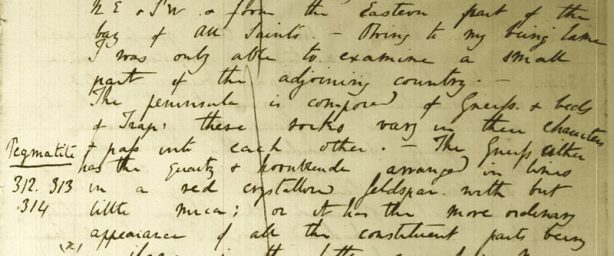 N E & S W & form the Eastern part of the
bay of All Saints. — Owing to my being lame
I was only able to examine a small
part of the adjoining country. —
The peninsula is composed of Gneiss. & beds
of Trap: these rocks vary in their characters
Pegmatite & pass into each other. — The Gneiss either
has the quartz & hornblende arranged in lines
312. 313 in a red crystalline feldspar with but
.314 little mica; or it has the more ordinary
appearance of all the constituent parts being
(x)